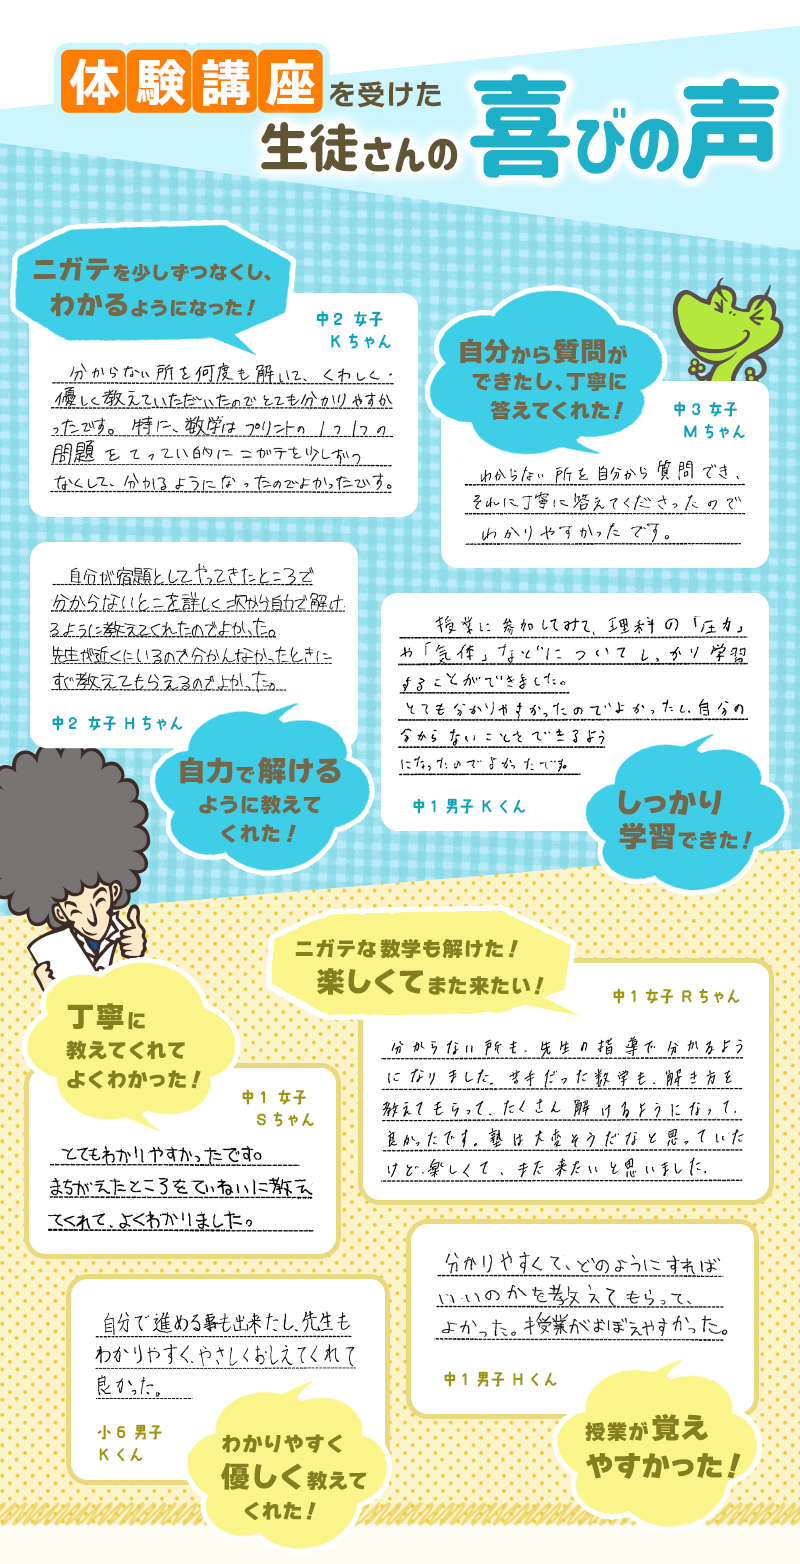 体験講座を受けた
生徒さんの喜びの声
ニガテを少しずつなくし、
わかるようになった！
中2 女子
Kちゃん
分からない所を何度も解いて、くわしく・
優しく教えていただいたのでとても分かりやすか
ったです。特に、数学はプリントの1つ1つの
問題をてってい的にニガテを少しずつ
なくして、分かるようになったのでよかったです。
自分から質問が
できたし、丁寧に
答えてくれた！
中3 女子
Mちゃん
わからない所を自分から質問でき、
それに丁寧に答えてくださったので
わかりやすかったです。
自分が宿題としてやってきたところで
分からないとこを詳しく次から自力で解け
るように教えてくれたのでよかった。
先生が近くにいるので分かんなかったときに
すぐ教えてもらえるのでよかった。
中2 女子 Hちゃん
自力で解ける
ように教えて
くれた！
授業に参加してみて、理科の「圧力」
や「気体」などについてしっかり学習
することができました。
とても分かりやすかったのでよかったし、自分の
分からないことをできるよう
になったのでよかったです。
中1 男子 Kくん
しっかり
学習できた！
ニガテな数学も解けた！
楽しくてまた来たい！
中1 女子 Rちゃん
分からない所も、先生の指導で分かるよう
になりました。苦手だった数学も、解き方を
教えてもらって、たくさん解けるようになって、
良かったです。塾は大変そうだなと思っていた
けど、楽しくて、また来たいと思いました。
丁寧に
教えてくれて
よくわかった！
中1 女子
Sちゃん
とてもわかりやすかったです。
まちがえたところをていねいに教え
てくれて、よくわかりました。
分かりやすくて、どのようにすれば
いいのかを教えてもらって、
よかった。授業がおぼえやすかった。
中1 男子 Hくん
授業が覚え
やすかった！
自分で進める事も出来たし、先生も
わかりやすく、やさしくおしえてくれて
良かった。
小6 男子
Kくん
わかりやすく
優しく教えて
くれた！